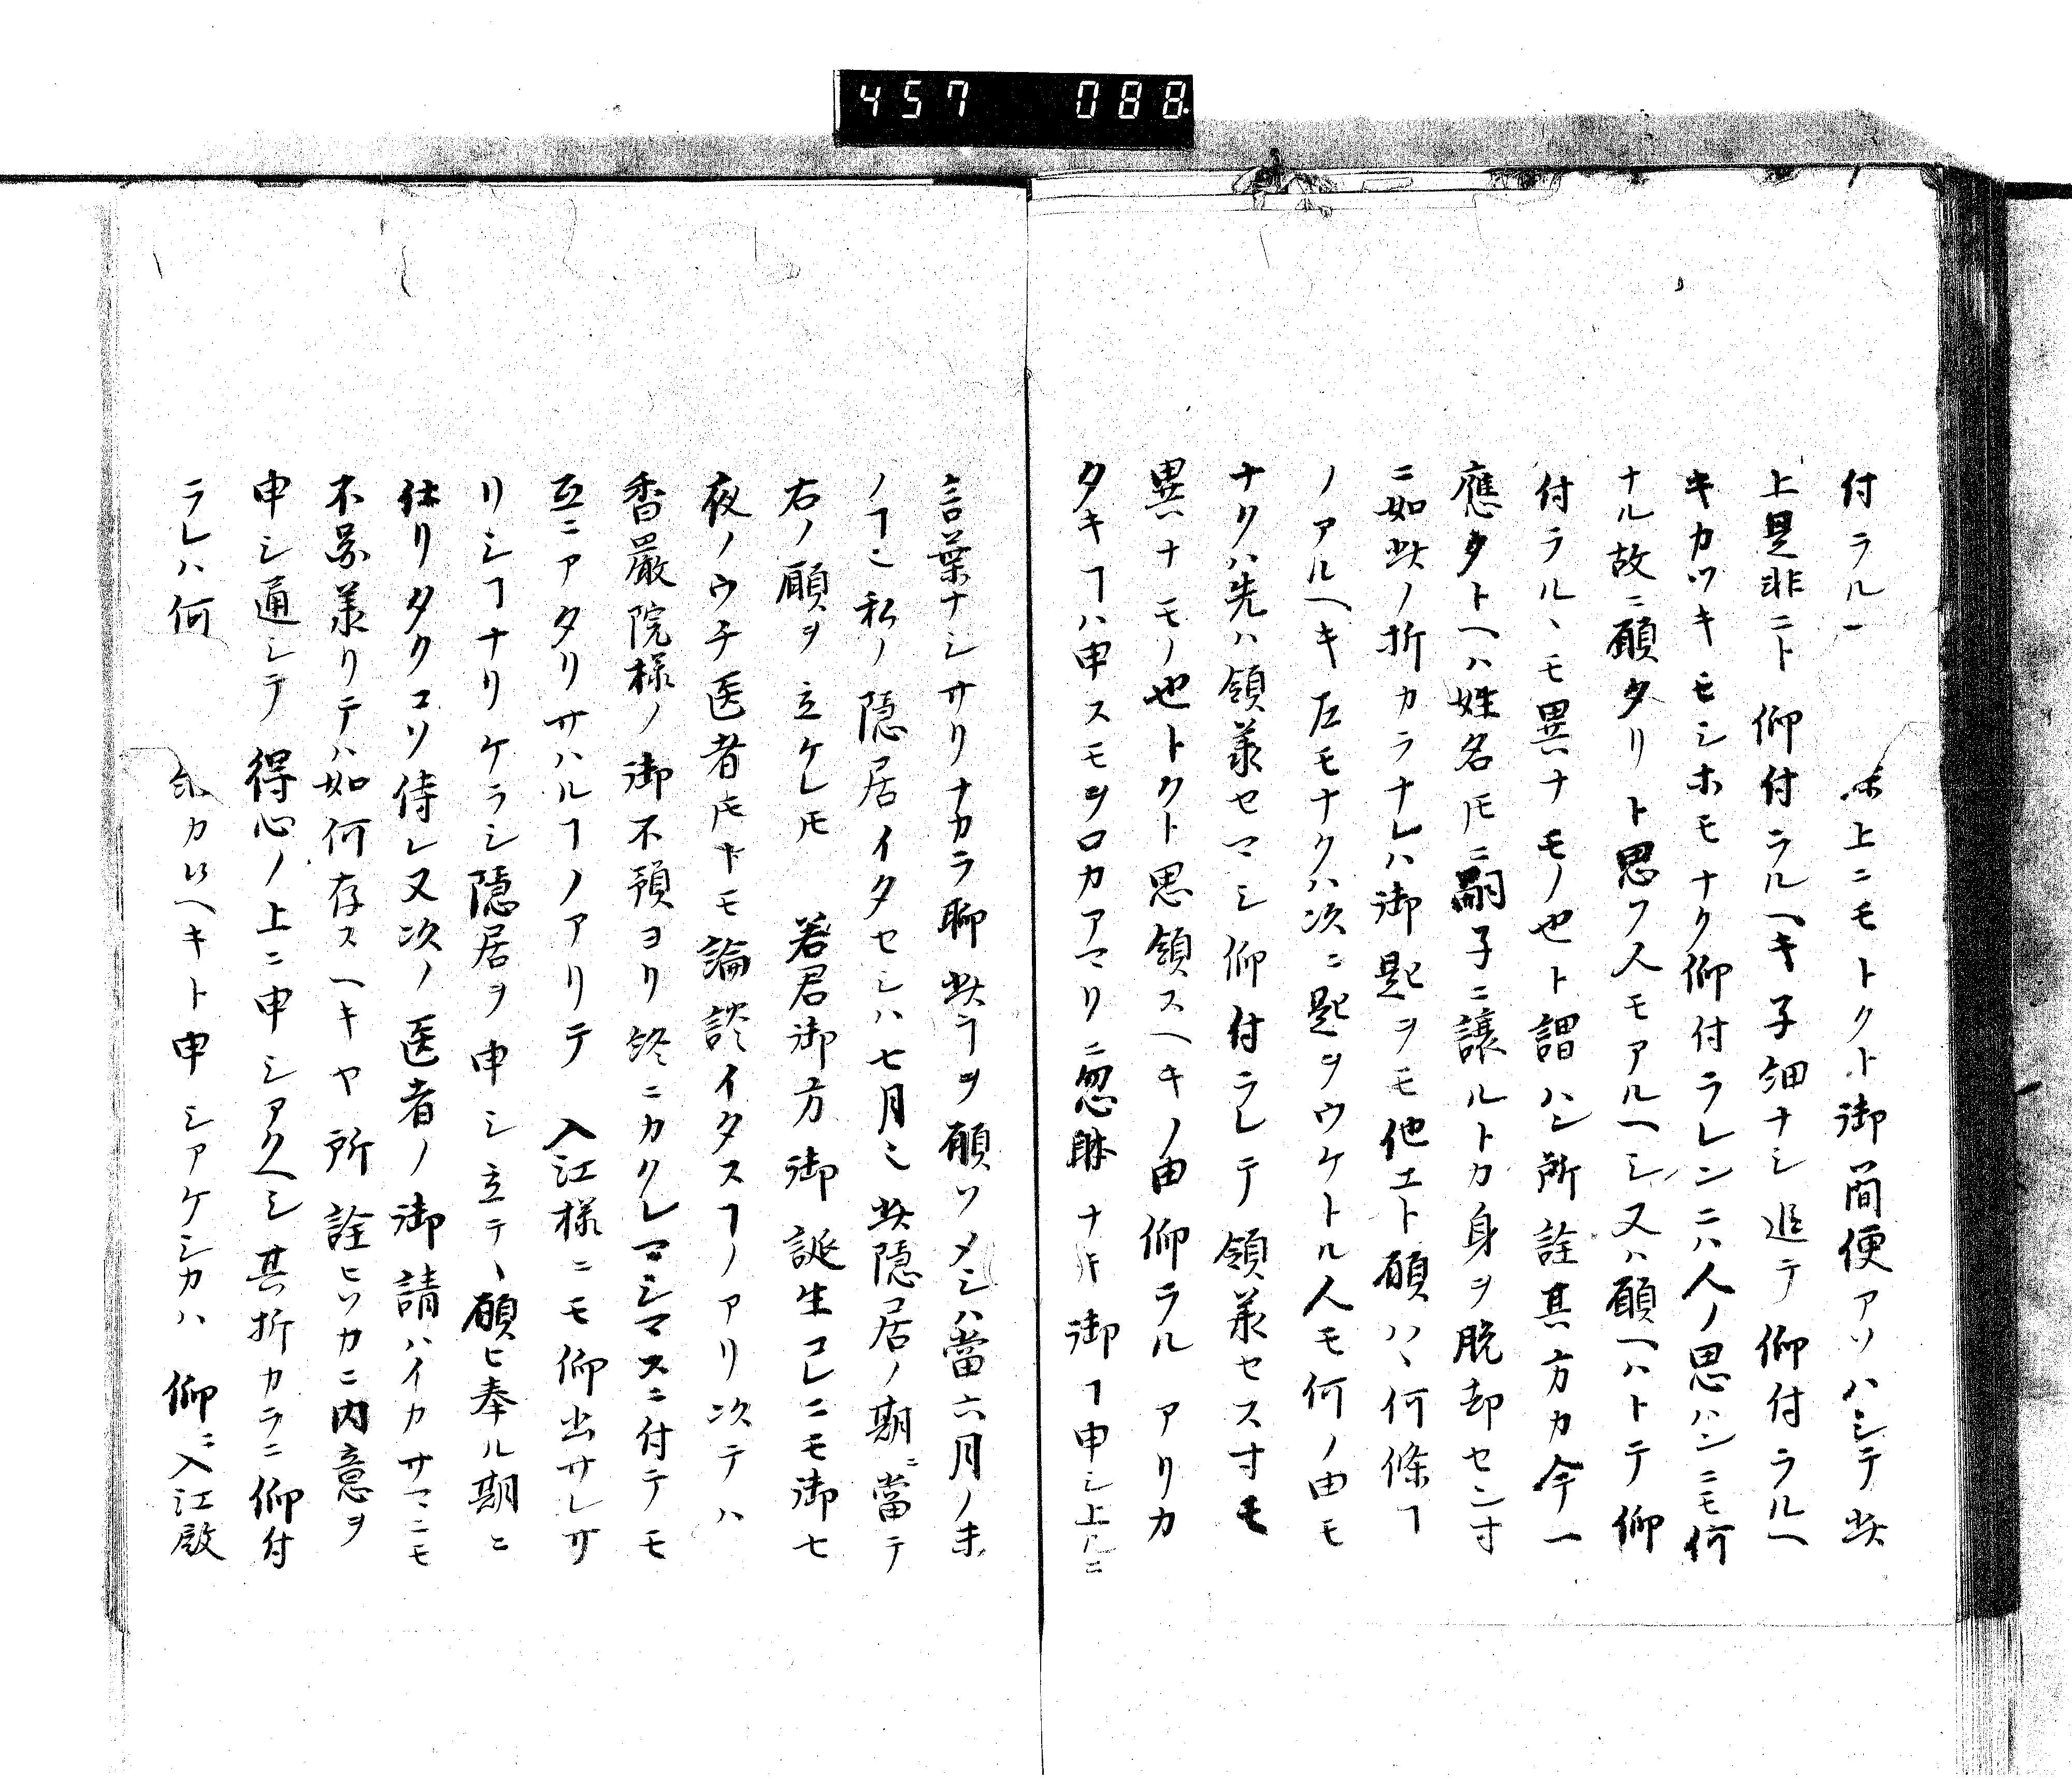 457 088
付ラル 上ニモトクト御簡便アソハシテ此
上是非ニト 仰付ラルヘキ子細ナシ追テ 仰付ラルヘ
キカツキモシホモナク仰付ラレンニハ人ノ思ハンニモ何
ナル故ニ願タリト思フ人モアルヘシ又ハ願ヘハトテ仰
付ラルヽモ異ナモノ也ト謂ハン所詮其方カ今一
應タトヘハ姓名ヒニ嗣子ニ譲ルトカ身ヲ脱却センヿ
ニ如此ノ折カラナレハ御匙ヲモ他エト願ハヽ何條ヿ
ノアルヘキ左モナクハ次ニ匙ヲウケトル人モ何ノ由モ
ナクハ先ハ領掌セマシ仰付ラレテ領掌セス寸モ
異ナモノ也トクト思領スヘキノ由 仰ラル アリカ
タキヿハ申スモヲロカアマリニ忽 ナキ御ヿ申シ上ルニ
言葉ナシサリナカラ聊此ヿヲ願ソメシハ當六月ノ末
ノヿ也私ノ隠居イタセシハ七月也此隠居ノ期ニ當テ
右ノ願ヲ立ケレ𪜈 若君御方御誕生コレニモ御七
夜ノウチ医者𪜈トモ論談イタスヿノアリ次テハ
香嚴院様ノ御不預ヨリ終ニカクレマシマスニ付テモ
互ニアタリサハルヿノアリテ 入江様ニモ仰出サレサ
リシヿナリケラシ隠居ヲ申シ立テヽ願ヒ奉ル期ニ
仕リタクコソ侍レ又次ノ医者ノ御請ハイカサマニモ
不及掌リテハ如何存スヘキヤ所詮ヒソカニ内意ヲ
申シ通シテ 得心ノ上ニ申シアクヘシ其折カラニ仰付
ラレハ何 カルヘキト申シアケシカハ 仰ニ入江殿